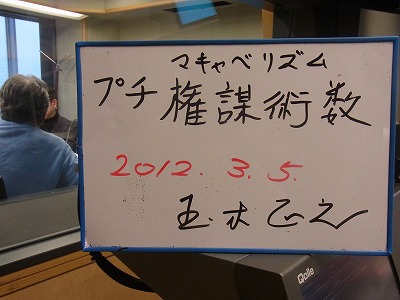 マキャベリズム
プチ権謀術数
2012. 3. 5.
玉木正之
Qolle